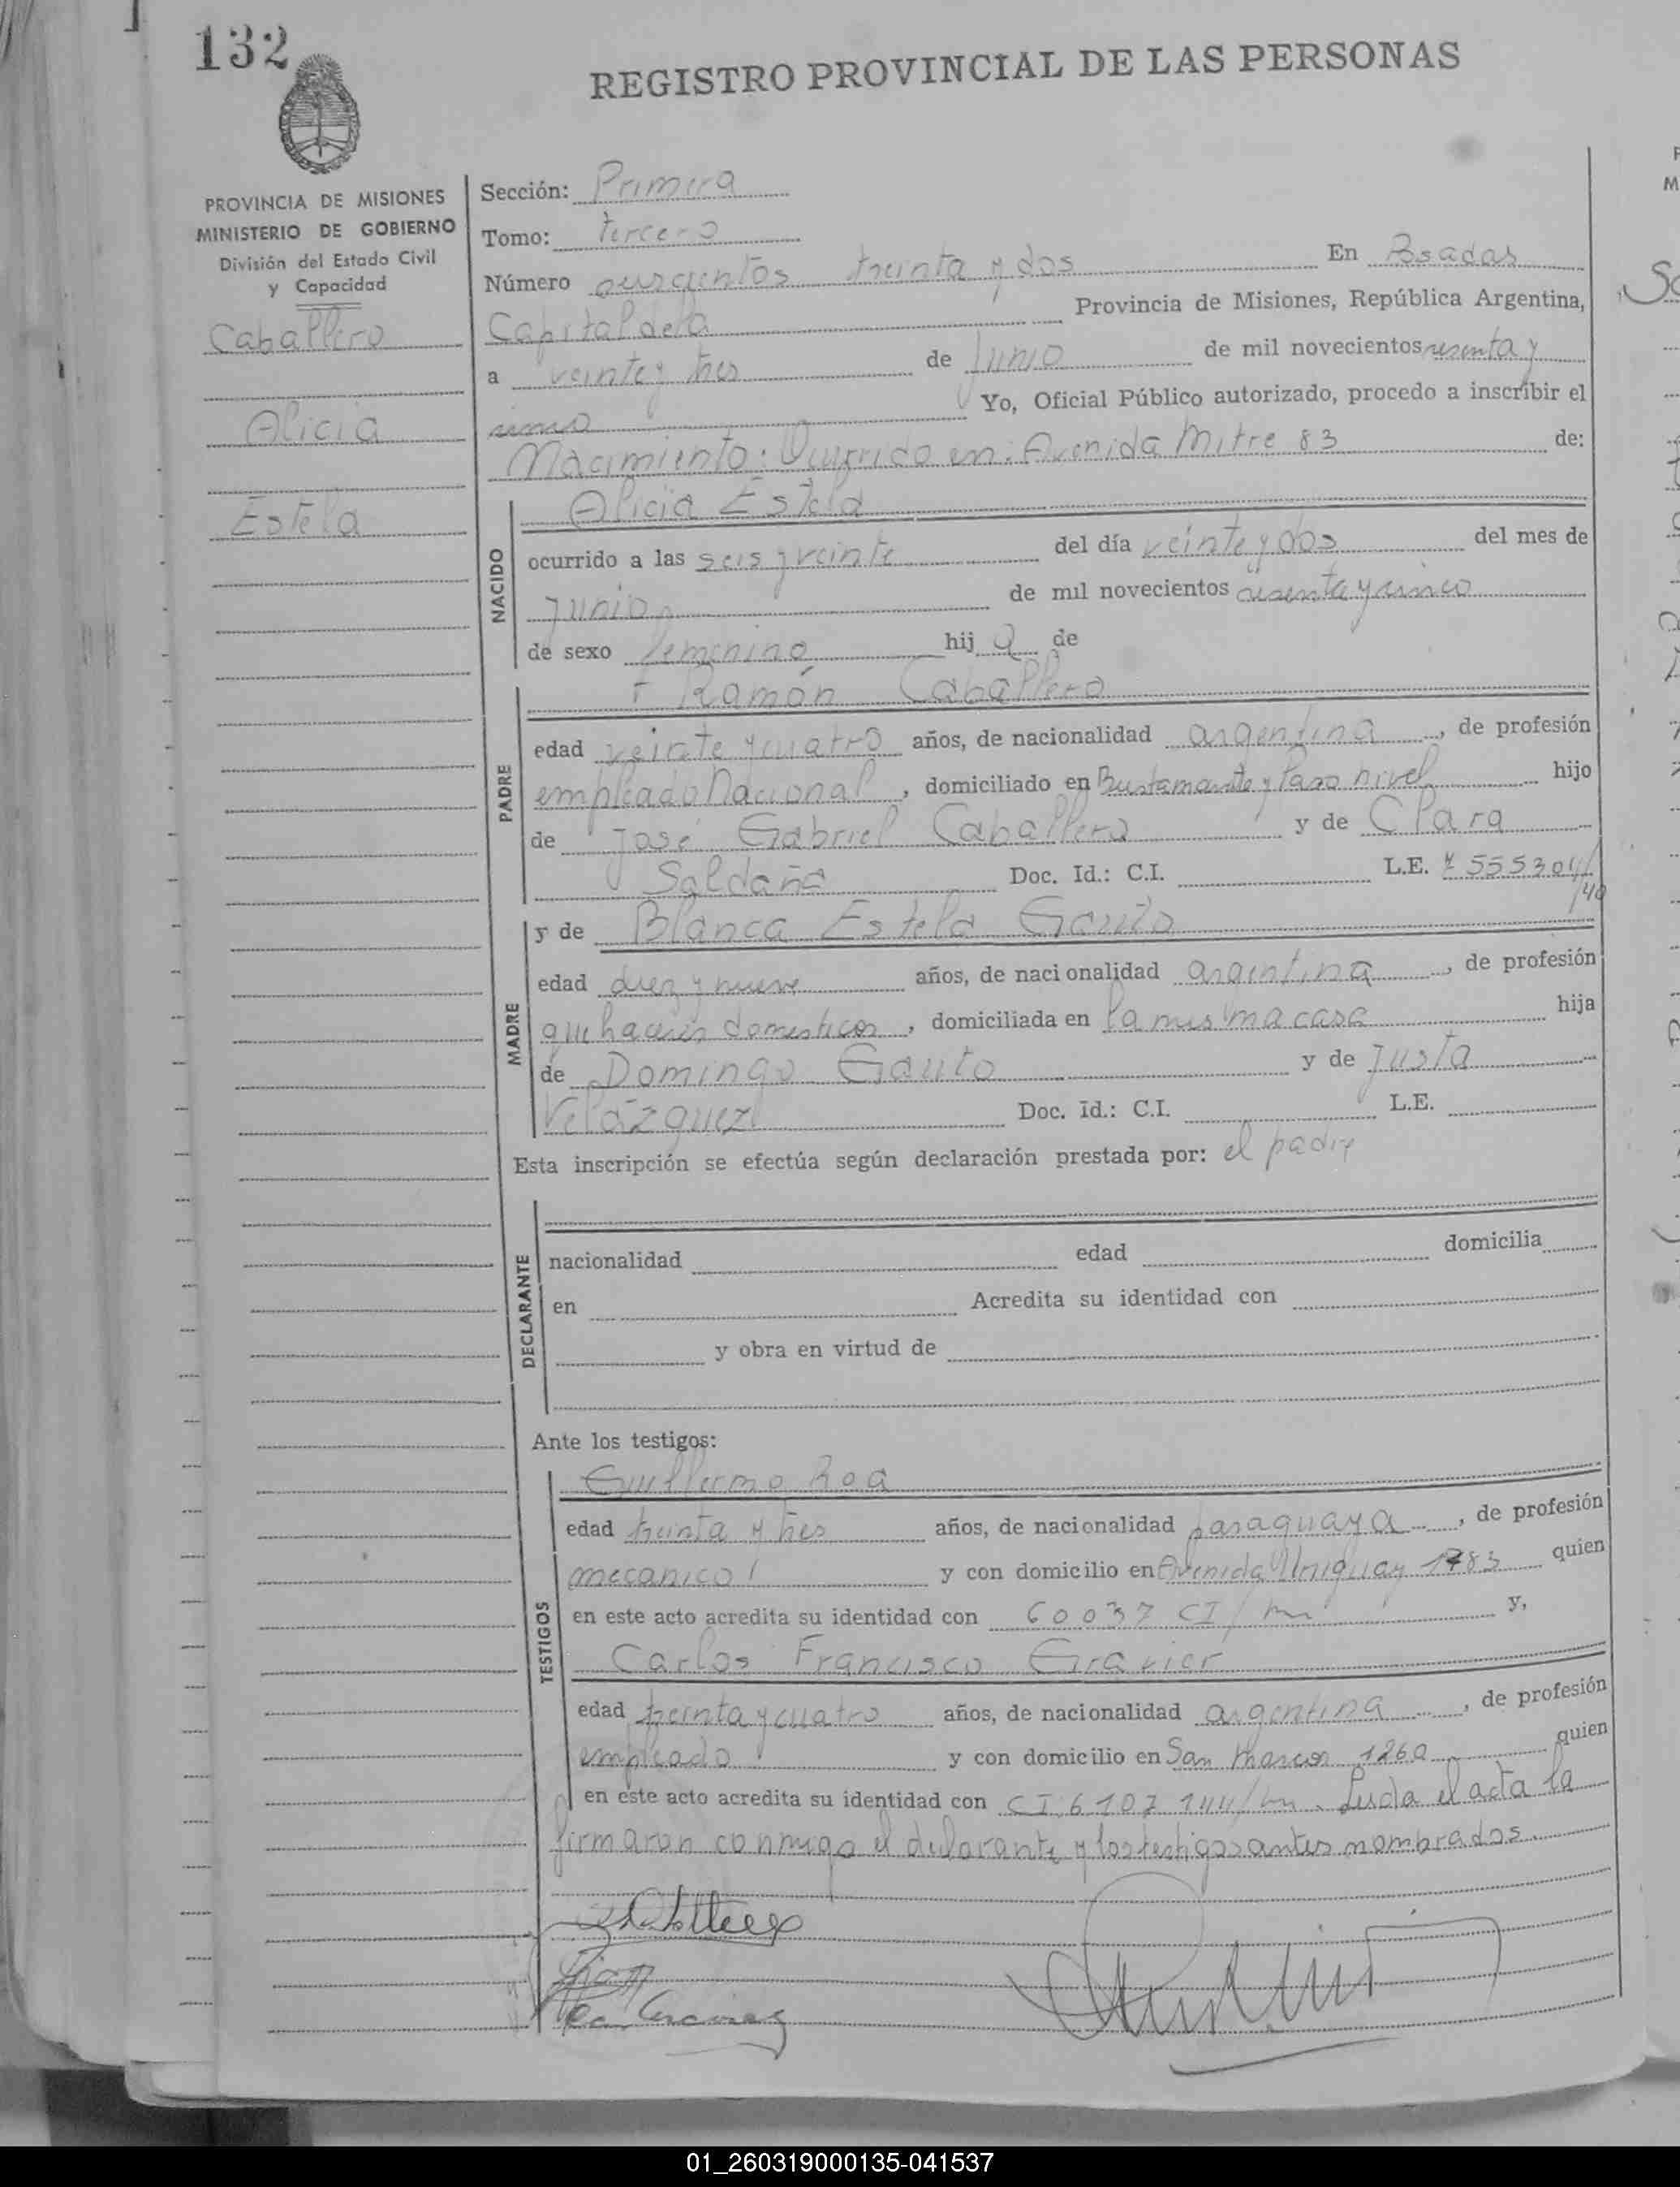 132
REGISTRO PROVINCIAL DE LAS PERSONAS
PROVINCIA DE MISIONES
MINISTERIO DE GOBIERNO
División del Estado Civil
y Capacidad
Caballero
Alicia
Estela
Sección: Primera
Tomo: tercero
Número treinta y dos En Posadas
Capital de la Provincia de Misiones, República Argentina,
a veinte y tres de Junio de mil novecientos sesenta y
cinco Yo, Oficial Público autorizado, procedo a inscribir el
Nacimiento: Ocurrido en: Avenida Mitre 83 de:
NACIDO
Alicia Estela
ocurrido a las seis y veinte del día veinte y dos del mes de
junio de mil novecientos sesenta y cinco
de sexo femenino hij a de
PADRE
Ramón Caballero
edad veinte y cuatro años, de nacionalidad argentina, de profesión
empleado Nacional, domiciliado en Bustamante y Paso nivel hijo
de José Gabriel Caballero y de Clara
Saldaña Doc. Id.: C.I. L.E.
MADRE
y de Blanca Estela Gauto
edad diez y nueve años, de nacionalidad argentina, de profesión
quehaceres domesticos, domiciliada en la misma casa hija
de Domingo Gauto y de Justa
Velázquez Doc. Id.: C.I. L.E.
Esta inscripción se efectúa según declaración prestada por: el padre
DECLARANTE
nacionalidad edad domicilia
en Acredita su identidad con
y obra en virtud de
Ante los testigos:
TESTIGOS
Guillermo Roa
edad treinta y tres años, de nacionalidad paraguaya, de profesión
mecanico y con domicilio en Avenida Uruguay 1783 quien
en este acto acredita su identidad con 60037 CI/ y,
Carlos Francisco Gravier
edad treinta y cuatro años, de nacionalidad argentina, de profesión
empleado y con domicilio en San Marcos 1260 quien
en este acto acredita su identidad con CI. Leida el acta la
firmaron conmigo el declarante y los testigos antes nombrados.
01_260319000135-041537